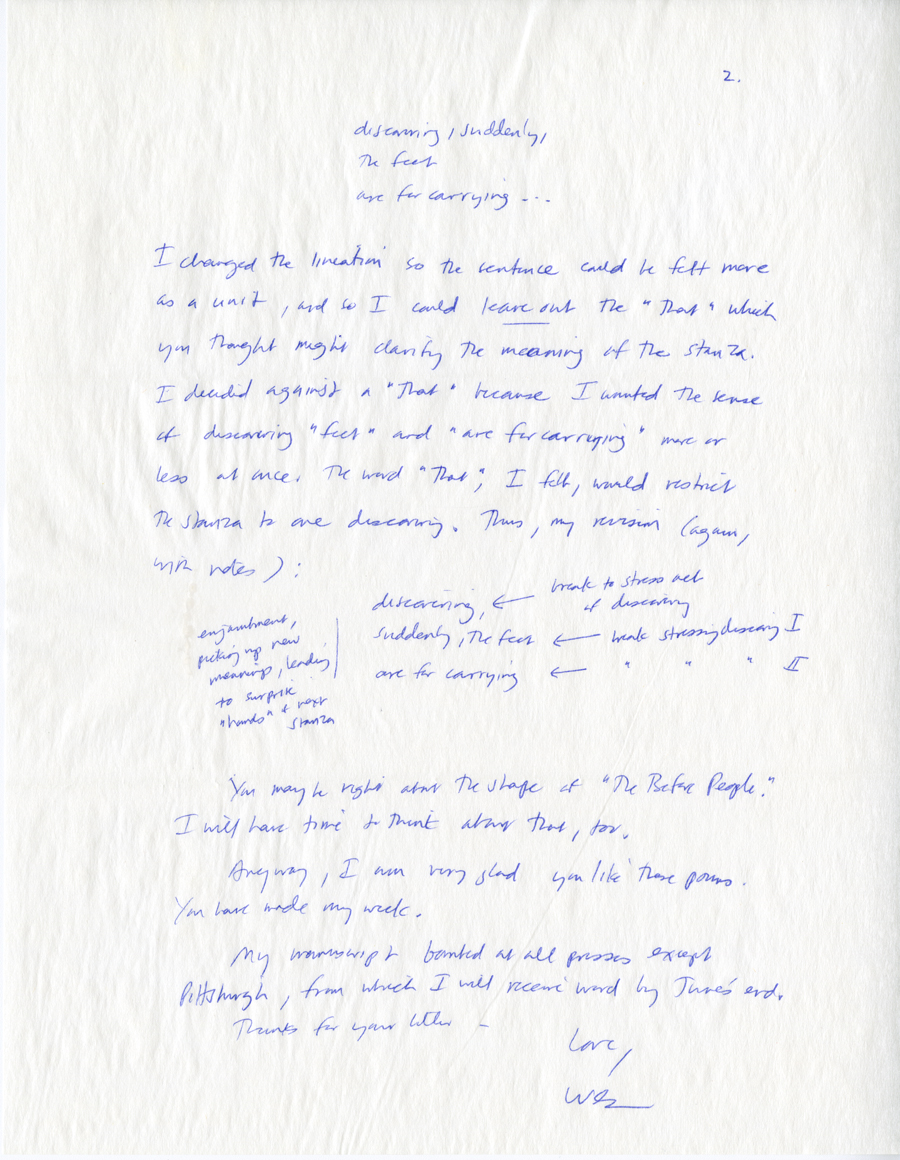 2.
discovering, suddenly,
the feet
are for carrying ...
I changed the lineation so the sentence could be felt more
as a unit, and so I could leave out the "that" which
you thought might clarify the meaning of the stanza.
I decided against a "that" because I wanted the sense
of discovering "feet" and "are for carrying" more or
less at once. The word "that", I felt, would restrict
the stanza to one discovering. Thus, my revision (again,
with notes):
discovering, ← break to stress act
of discovering
suddenly, the feet ← break stressing discovery I
are for carrying ← " " " II
enjambment,
picking up new
meanings, leading
to surprise
"hands" + next
stanza
You may be right about the shape of "The Before People."
I will have time to think about that, too.
Anyway, I am very glad you like these poems.
You have made my week.
My manuscript bombed at all presses except
Pittsburgh, from which I will receive word by June's end.
Thanks for your letter –
Love,
Wes